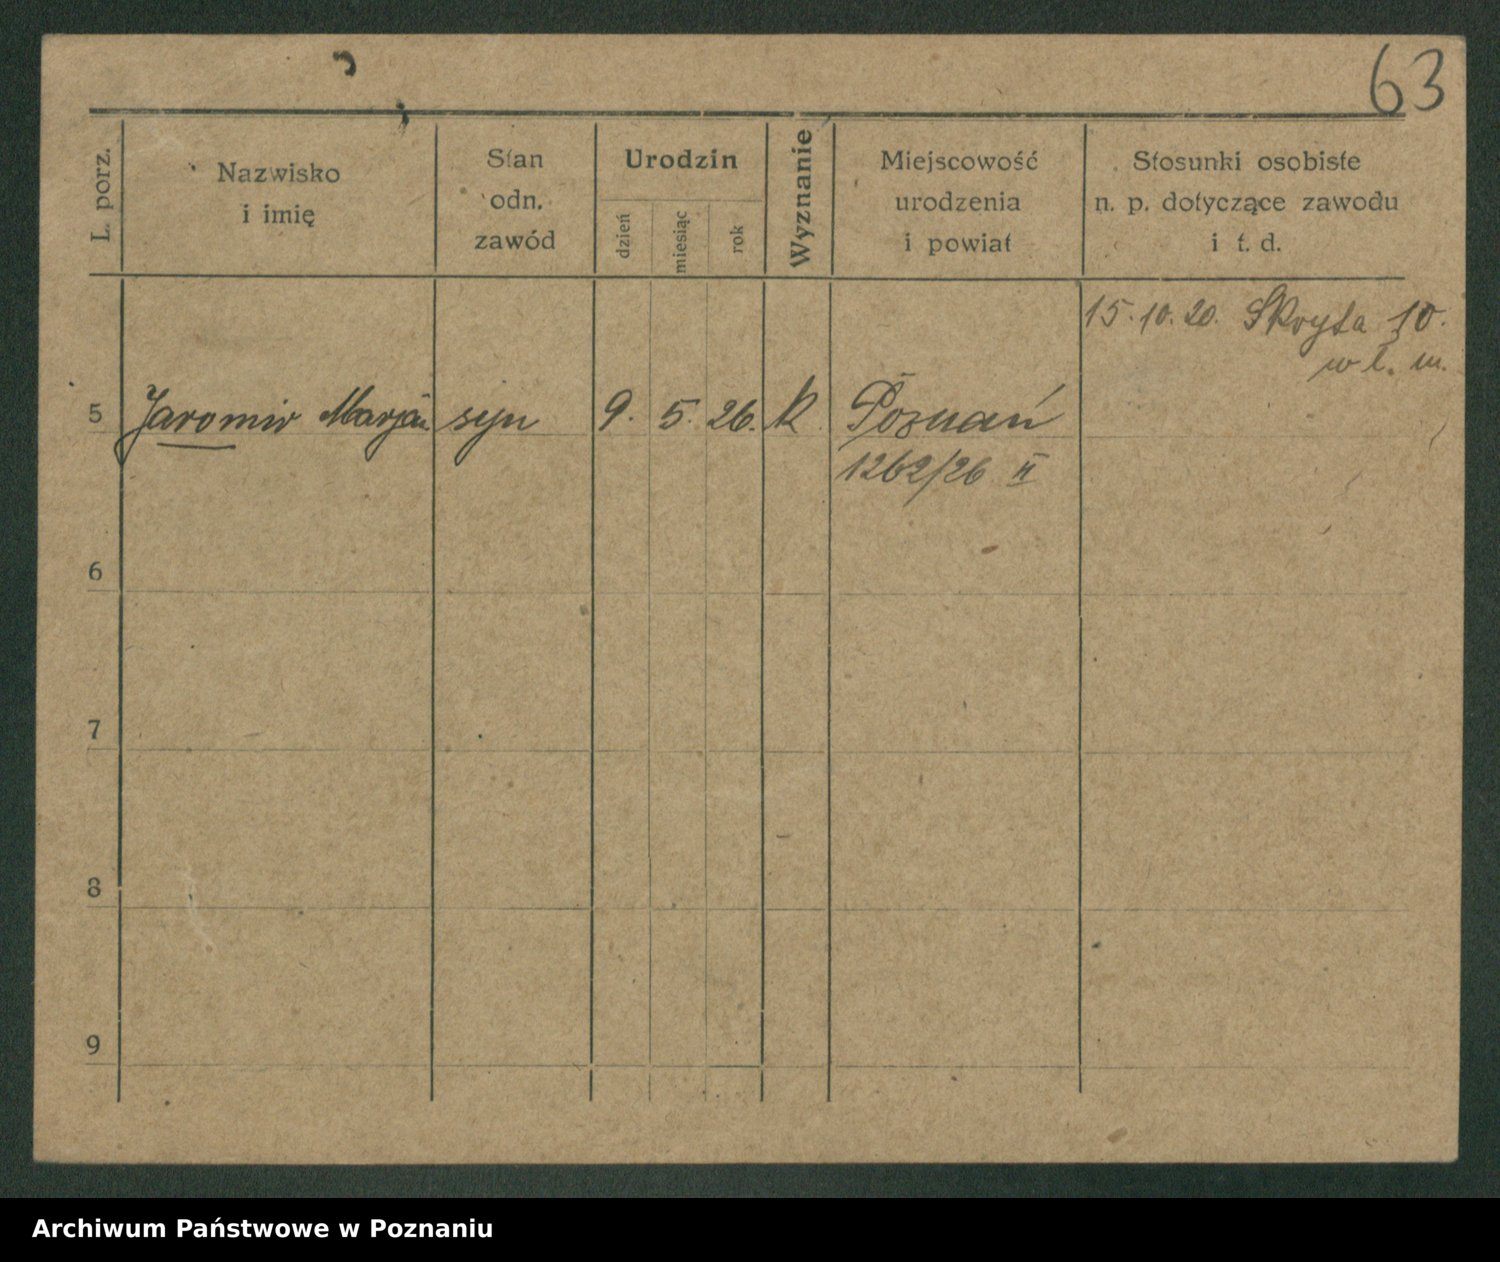 63
L. porz.
Nazwisko
i imię
Stan
odn.
zawód
Urodzin
dzień
miesiąc
rok
Wyznanie
Miejscowość
urodzenia
i powiat
Stosunki osobiste
n. p. dotyczące zawodu
i t. d.
15. 10. 20. Skryta 10.
w l. m.
5 Jaromir Marjan syn 9. 5. 26. k Poznań
1262/26 II
6
7
8
9
Archiwum Państwowe w Poznaniu